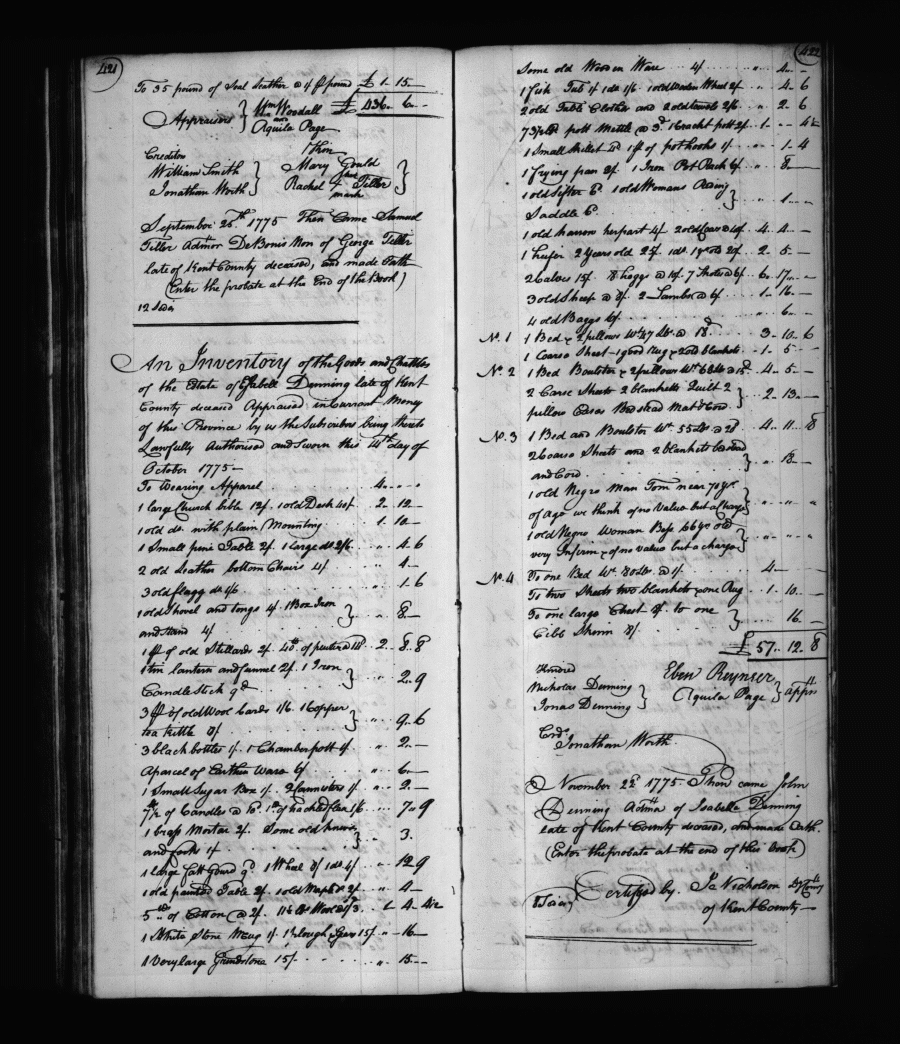 421
To 35 pound of Soal Leather @ 1/ ⅌ pound £ 1. 15.—
Appraisers } Wm Woodall £ 436.. 6..—
and
Aquila Page
Creditors Then
William Smith } Mary Gould
Jonathan Worth her
Rachel + Tiller }
mark
September 25th 1775 Then Came Samuel
Tiller Admor DeBonis Non of George Tiller
late of Kent County deceased, and made Oath
(Enter the probate at the End of the Book)
12 Sides
An Inventory of the Goods and Chattles
of the Estate of Isabell Denning late of Kent
County deceased Appraised in Currant Money
of this Province by us the Subscribers being thereto
Lawfully Authorised and Sworn this 14th day of
October 1775—
To Wearing Apparel 4.. .. ..
1 large Church bible 12/. 1 old Desk 40/ 2.. 12..—
1 old do. with plain Mounting 1.. 10..—
1 Small pine Table 2/. 1 large do 2/6 .. 4.. 6
2 old Leather bottom Chairs 4/ .. 4..—
3 old flagg do 1/6 .. 1.. 6
1 old Shovel and tongs 4/. 1 Box Iron }
and Stand 4/ .. 8..—
1 pr of old Stillards 2/. 40lb. of pewter @ 14d 2.. 8.. 8
1 tin lantern and funnel 2/. 1 Iron }
Candlestick 9d .. 2.. 9
3 pr of old Wool Cards 1/6 1 Copper }
tea kittle 8/ .. 9.. 6
3 black bottles 1/. 1 Chamber pott 1/. .. 2..—
A parcel of Earthen Ware 6/ .. 6..—
1 Small Sugar Box 1/. 2 Cannisters 1/ .. 2..—
7½ of Candles @ 10d. 1lb of hackled flax 1/6 .. 7.. 9
1 brass Mortar 2/. Some old knives }
and forks 1/ .. 3.
1 large fatt Gourd 9d 1 Wheel 8/ 1 do 4/ .. 12 9
1 old painted Table 2/. 1 old do 2/ .. 4..—
5 lb of Cotton @ 2/. 11½ lb Wool @ 1/3 1.. 4.. 4½
1 White Stone Mugg 1/. 1 Plough & Gears 15/ .. 16..—
1 Very large Grindstone 15/. .. 15..—
422
Some old Wooden Ware 4/ .. 4..—
1 fish Tub 1/ 1 do 1/6 1 old Woolen Wheel 2/ .. 4.. 6
2 old Table Cloths and 2 old towels 2/6 .. 2.. 6
73 pds pott Mettle @ 3d. 1 Cracht pott 2/. 1.. .. 4½
1 Small Skillet @ 1 pr of pot hooks 1/. .. 1.. 4
1 Frying pan 2/. 1 Iron Pot Rack 6/ .. 8..—
1 old Sifter 6d 1 old Womans Riding }
Saddle 6d .. 1..—
1 old mare 4/ 2 old Cows @ 40/. 4.. 4..—
1 heifer 2 Years old 25/. 1 do 1 yr old 20/. 2.. 5..—
2 Calves 15/. 8 hoggs @ 10/. 7 Shotes @ 6/ 6.. 17..—
3 old Sheep @ 8/. 2 Lambs @ 6/ 1.. 16..—
4 old Baggs 6/. .. 6..—
No. 1 1 Bed & 2 pillows Wt 47 lbs @ 18d 3.. 10.. 6
1 Coarse Sheet 1 good Rug & 2 old blankets 1.. 5..—
No. 2 1 Bed Boulster & 2 pillows Wt 68 lbs @ 15d 4.. 5..—
2 Carse Sheets 2 blanketts Quilt 2 }
pillow Cases Bedstead Mat & Cord 2.. 13..—
No. 3 1 Bed and Boulster Wt. 55 lbs @ 20d 4.. 11.. 8
2 Coarse Sheets and 2 blankets bedstead }
and Cord .. 18..—
1 old Negro Man Tom near 70 yrs. }
of Age we think of no Value but a Charge .. .. ..
1 old Negro Woman Bess 66 yrs old }
very Infirm & of no value but a charge .. .. ..
No. 4 To one Bed Wt. 80 lbs. @ 1/. 4..—
To two Sheets two blankets & one Rug 1.. 10..—
To one large Chest 8/. to one }
8/. .. 16..—
£ 57.. 12.. 8
Kindred
Nicholas Denning }
Jonas Denning
Eben Reyner }
Aquila Page apprs
Crds
Jonathan Worth
November 22d 1775 Then came John
Denning Admr of Isabella Denning
late of Kent County deceased, and made Oath.
(Enter the probate at the end of this Book)
8 Sides } Certifyed by. Ja Nicholson Dy Comy
of Kent County—